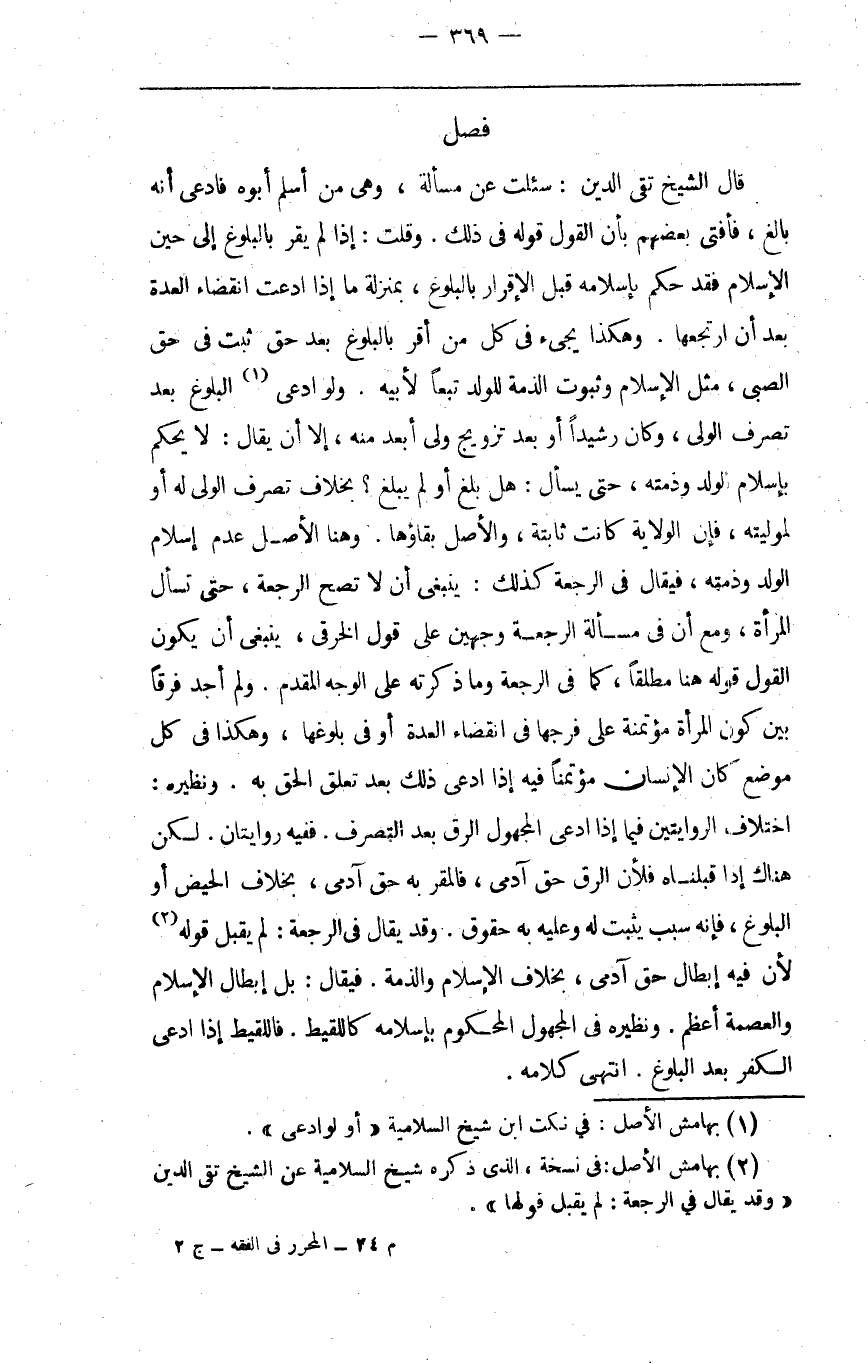 — ٣٦٩ —
فصل
قال الشيخ تقى الدين : سئلت عن مسألة ، وهى من أسلم أبوه فادعى أنه
بالغ ، فأفتى بعضهم بأن القول قوله فى ذلك . وقلت : إذا لم يقر بالبلوغ إلى حين
الإسلام فقد حكم بإسلامه قبل الإقرار بالبلوغ ، بمنزلة ما إذا ادعت انقضاء العدة
بعد أن ارتجعها . وهكذا يجىء فى كل من أقر بالبلوغ بعد حق ثبت فى حق
الصبى ، مثل الإسلام وثبوت الذمة للولد تبعاً لأبيه . ولو ادعى (١) البلوغ بعد
تصرف الولى ، وكان رشيداً أو بعد تزويج ولى أبعد منه ، إلا أن يقال : لا يحكم
بإسلام الولد وذمته ، حتى يسأل : هل بلغ أو لم يبلغ ؟ بخلاف تصرف الولى له أو
لموليته ، فإن الولاية كانت ثابتة ، والأصل بقاؤها . وهنا الأصل عدم إسلام
الولد وذمته ، فيقال فى الرجعة كذلك : ينبغى أن لا تصح الرجعة ، حتى تسأل
المرأة ، ومع أن فى مسألة الرجعة وجهين على قول الخرقى ، ينبغى أن يكون
القول قوله هنا مطلقاً ، كما فى الرجعة وما ذكرته على الوجه المقدم . ولم أجد فرقاً
بين كون المرأة مؤتمنة على فرجها فى انقضاء العدة أو فى بلوغها ، وهكذا فى كل
موضع كان الإنسان مؤتمناً فيه إذا ادعى ذلك بعد تعلق الحق به . ونظيره :
اختلاف الروايتين فيما إذا ادعى المجهول الرق بعد التصرف . ففيه روايتان . لكن
هناك إذا قبلناه فلأن الرق حق آدمى ، فالمقر به حق آدمى ، بخلاف الحيض أو
البلوغ ، فإنه سبب يثبت له وعليه به حقوق . وقد يقال فى الرجعة : لم يقبل قوله (٢)
لأن فيه إبطال حق آدمى ، بخلاف الإسلام والذمة . فيقال : بل إبطال الإسلام
والعصمة أعظم . ونظيره فى المجهول المحكوم بإسلامه كاللقيط . فاللقيط إذا ادعى
الكفر بعد البلوغ . انتهى كلامه .
(١) بهامش الأصل : في نكت ابن شيخ السلامية « أو لوادعى » .
(٢) بهامش الأصل : فى نسخة ، الذى ذكره شيخ السلامية عن الشيخ تقى الدين
« وقد يقال في الرجعة : لم يقبل قولها » .
م ٢٤ ــ المحرر فى الفقه ــ ج ٢